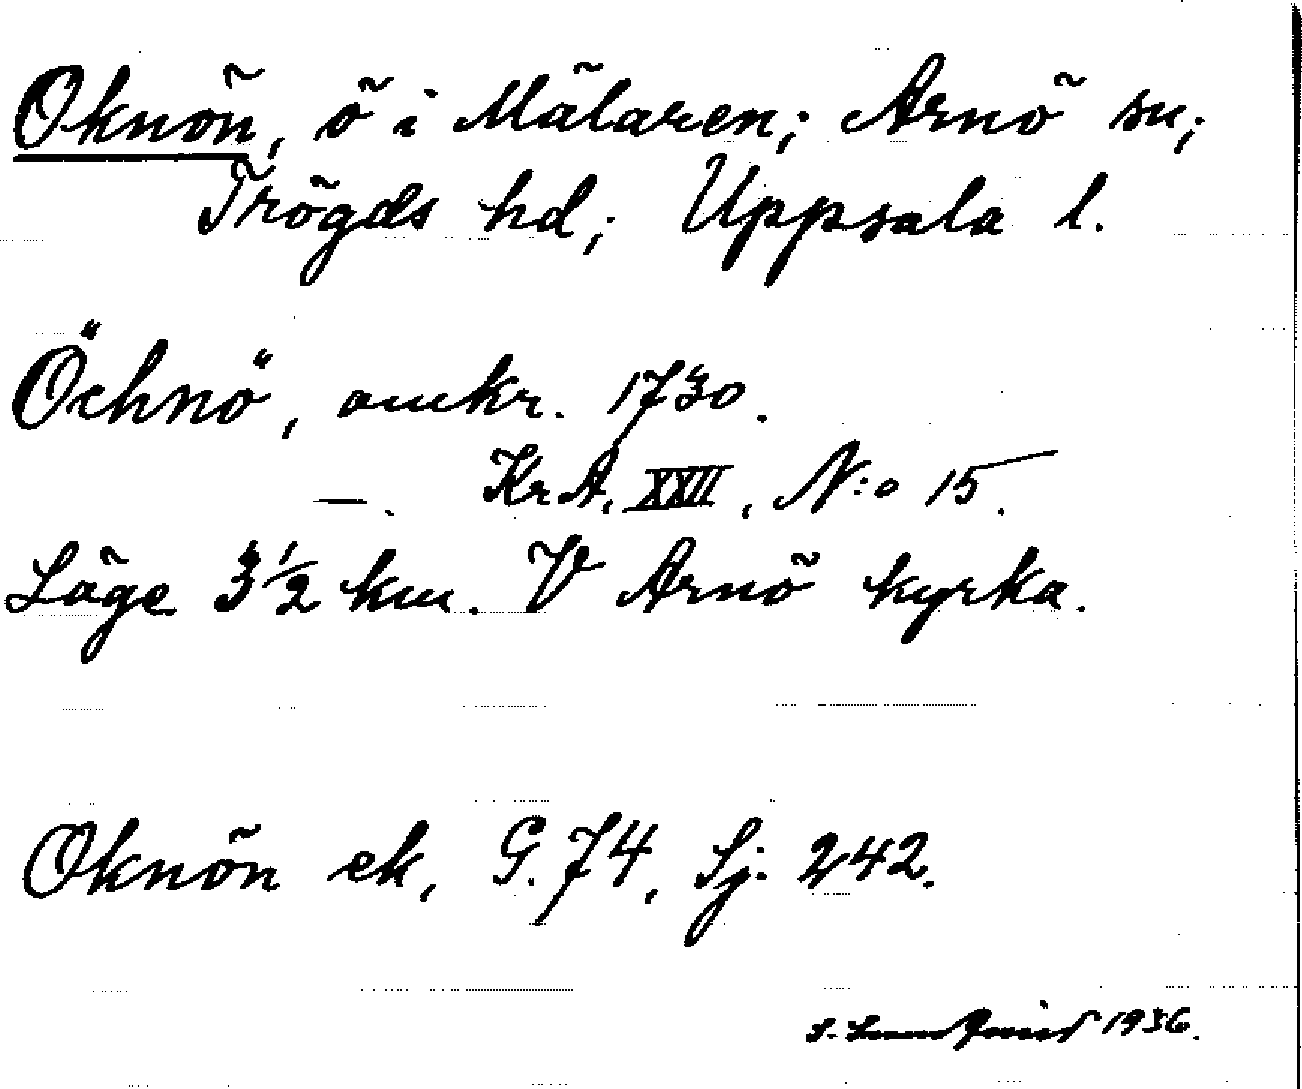 Oknön, ö i Mälaren; Arnö sn;
Trögds hd; Uppsala l.
Öchnö, omkr. 1730.
— . KrA, XXII, N:o 15.
Läge 3 1/2 km. V Arnö kyrka.
Oknön ek, G. 74, Sj. 242.
S. Lundqvist 1936.